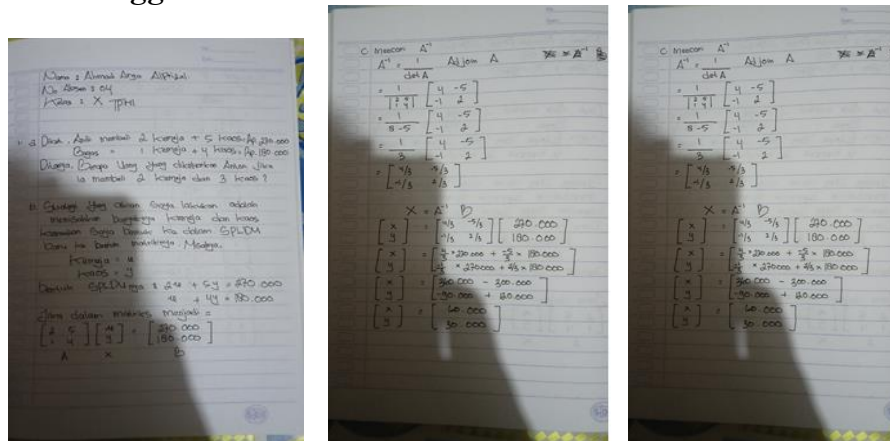 Nama : Ahmad
No Absen : 04
Kelas : X TPM 1
1. a. Diket. Andi membeli 2 kemeja + 5 kaos = Rp. 270.000
Bagas = 1 kemeja + 4 kaos = Rp. 180.000
Ditanya. Berapa Uang yang
ia membeli 2 kemeja dan 3 kaos ?
b. yang akan Saya lakukan adalah
kemeja dan kaos
kemudian Saya kedalam SPLDV
baru ke matriksnya. Misalnya.
Kemeja = x
kaos = y
bentuk SPLDVnya = 2x + 5y = 270.000
x + 4y = 180.000
dalam matriks menjadi =
[2 5
1 4] [x
y] = [270.000
180.000]
A X B
C Mencari A⁻¹
A⁻¹ = 1/det A Adjoin A
= 1/|2 5
1 4| [4 -5
-1 2]
= 1/8-5 [4 -5
-1 2]
= 1/3 [4 -5
-1 2]
= [4/3 -5/3
-1/3 2/3]
X = A⁻¹ B
[x
y] = [4/3 -5/3
-1/3 2/3] [270.000
180.000]
[x
y] = [4/3 × 270.000 + -5/3 × 180.000
× 270.000 + × 180.000]
[x
y] = [360.000 - 300.000
-90.000 + 120.000]
[x
y] = [60.000
30.000]
C Mencari A⁻¹
A⁻¹ = 1/det A Adjoin A
= 1/|2 5
1 4| [4 -5
-1 2]
= 1/8-5 [4 -5
-1 2]
= 1/3 [4 -5
-1 2]
= [4/3 -5/3
-1/3 2/3]
X = A⁻¹ B
[x
y] = [4/3 -5/3
-1/3 2/3] [270.000
180.000]
[x
y] = [4/3 × 270.000 + -5/3 × 180.000
× 270.000 + × 180.000]
[x
y] = [360.000 - 300.000
-90.000 + 120.000]
[x
y] = [60.000
30.000]